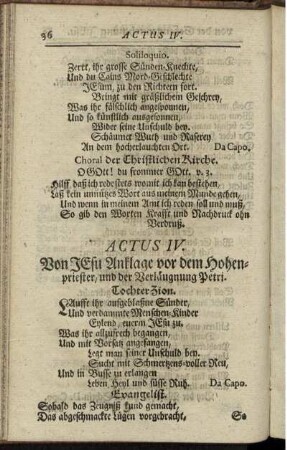 36 ACTUS IV.
Soliloquio.
Zerrt, ihr grosse Sünden-Knechte,
Und du Cains Mord-Geschlechte
JEsum, zu den Richtern fort.
Bringt mit gräßlichem Geschrey,
Was ihr fälschlich angesponnen,
Und so künstlich ausgesonnen,
Wider seine Unschuld bey.
Schäumet Wuth und Raserey
An dem hocherlauchten Ort. Da Capo.
Choral der Christlichen Kirche.
O GOtt! du frommer GOtt. v. 3.
Hilff daß ich rede stets womit ich kan bestehen,
Laß kein unnützes Wort aus meinem Munde gehen,
Und wenn in meinem Amt ich reden soll und muß,
So gib den Worten Krafft und Nachdruck ohn
Verdruß.
ACTUS IV.
Von JEsu Anklage vor dem Hohen-
priester, und der Verläugnung Petri.
Tochter Zion.
Laufft ihr aufgeblaßne Sünder,
Und verdammte Menschen-Kinder
Eylend, eurem JEsu zu.
Was ihr allzufrech begangen,
Und mit Vorsatz angefangen,
Legt man seiner Unschuld bey.
Sucht mit Schmertzens-voller Reu,
Und in Busse zu erlangen
Leben Heyl und süsse Ruh. Da Capo.
Evangelist.
Sobald das Zeugniß kund gemacht,
Das abgeschmackte Lügen vorgebracht,
So